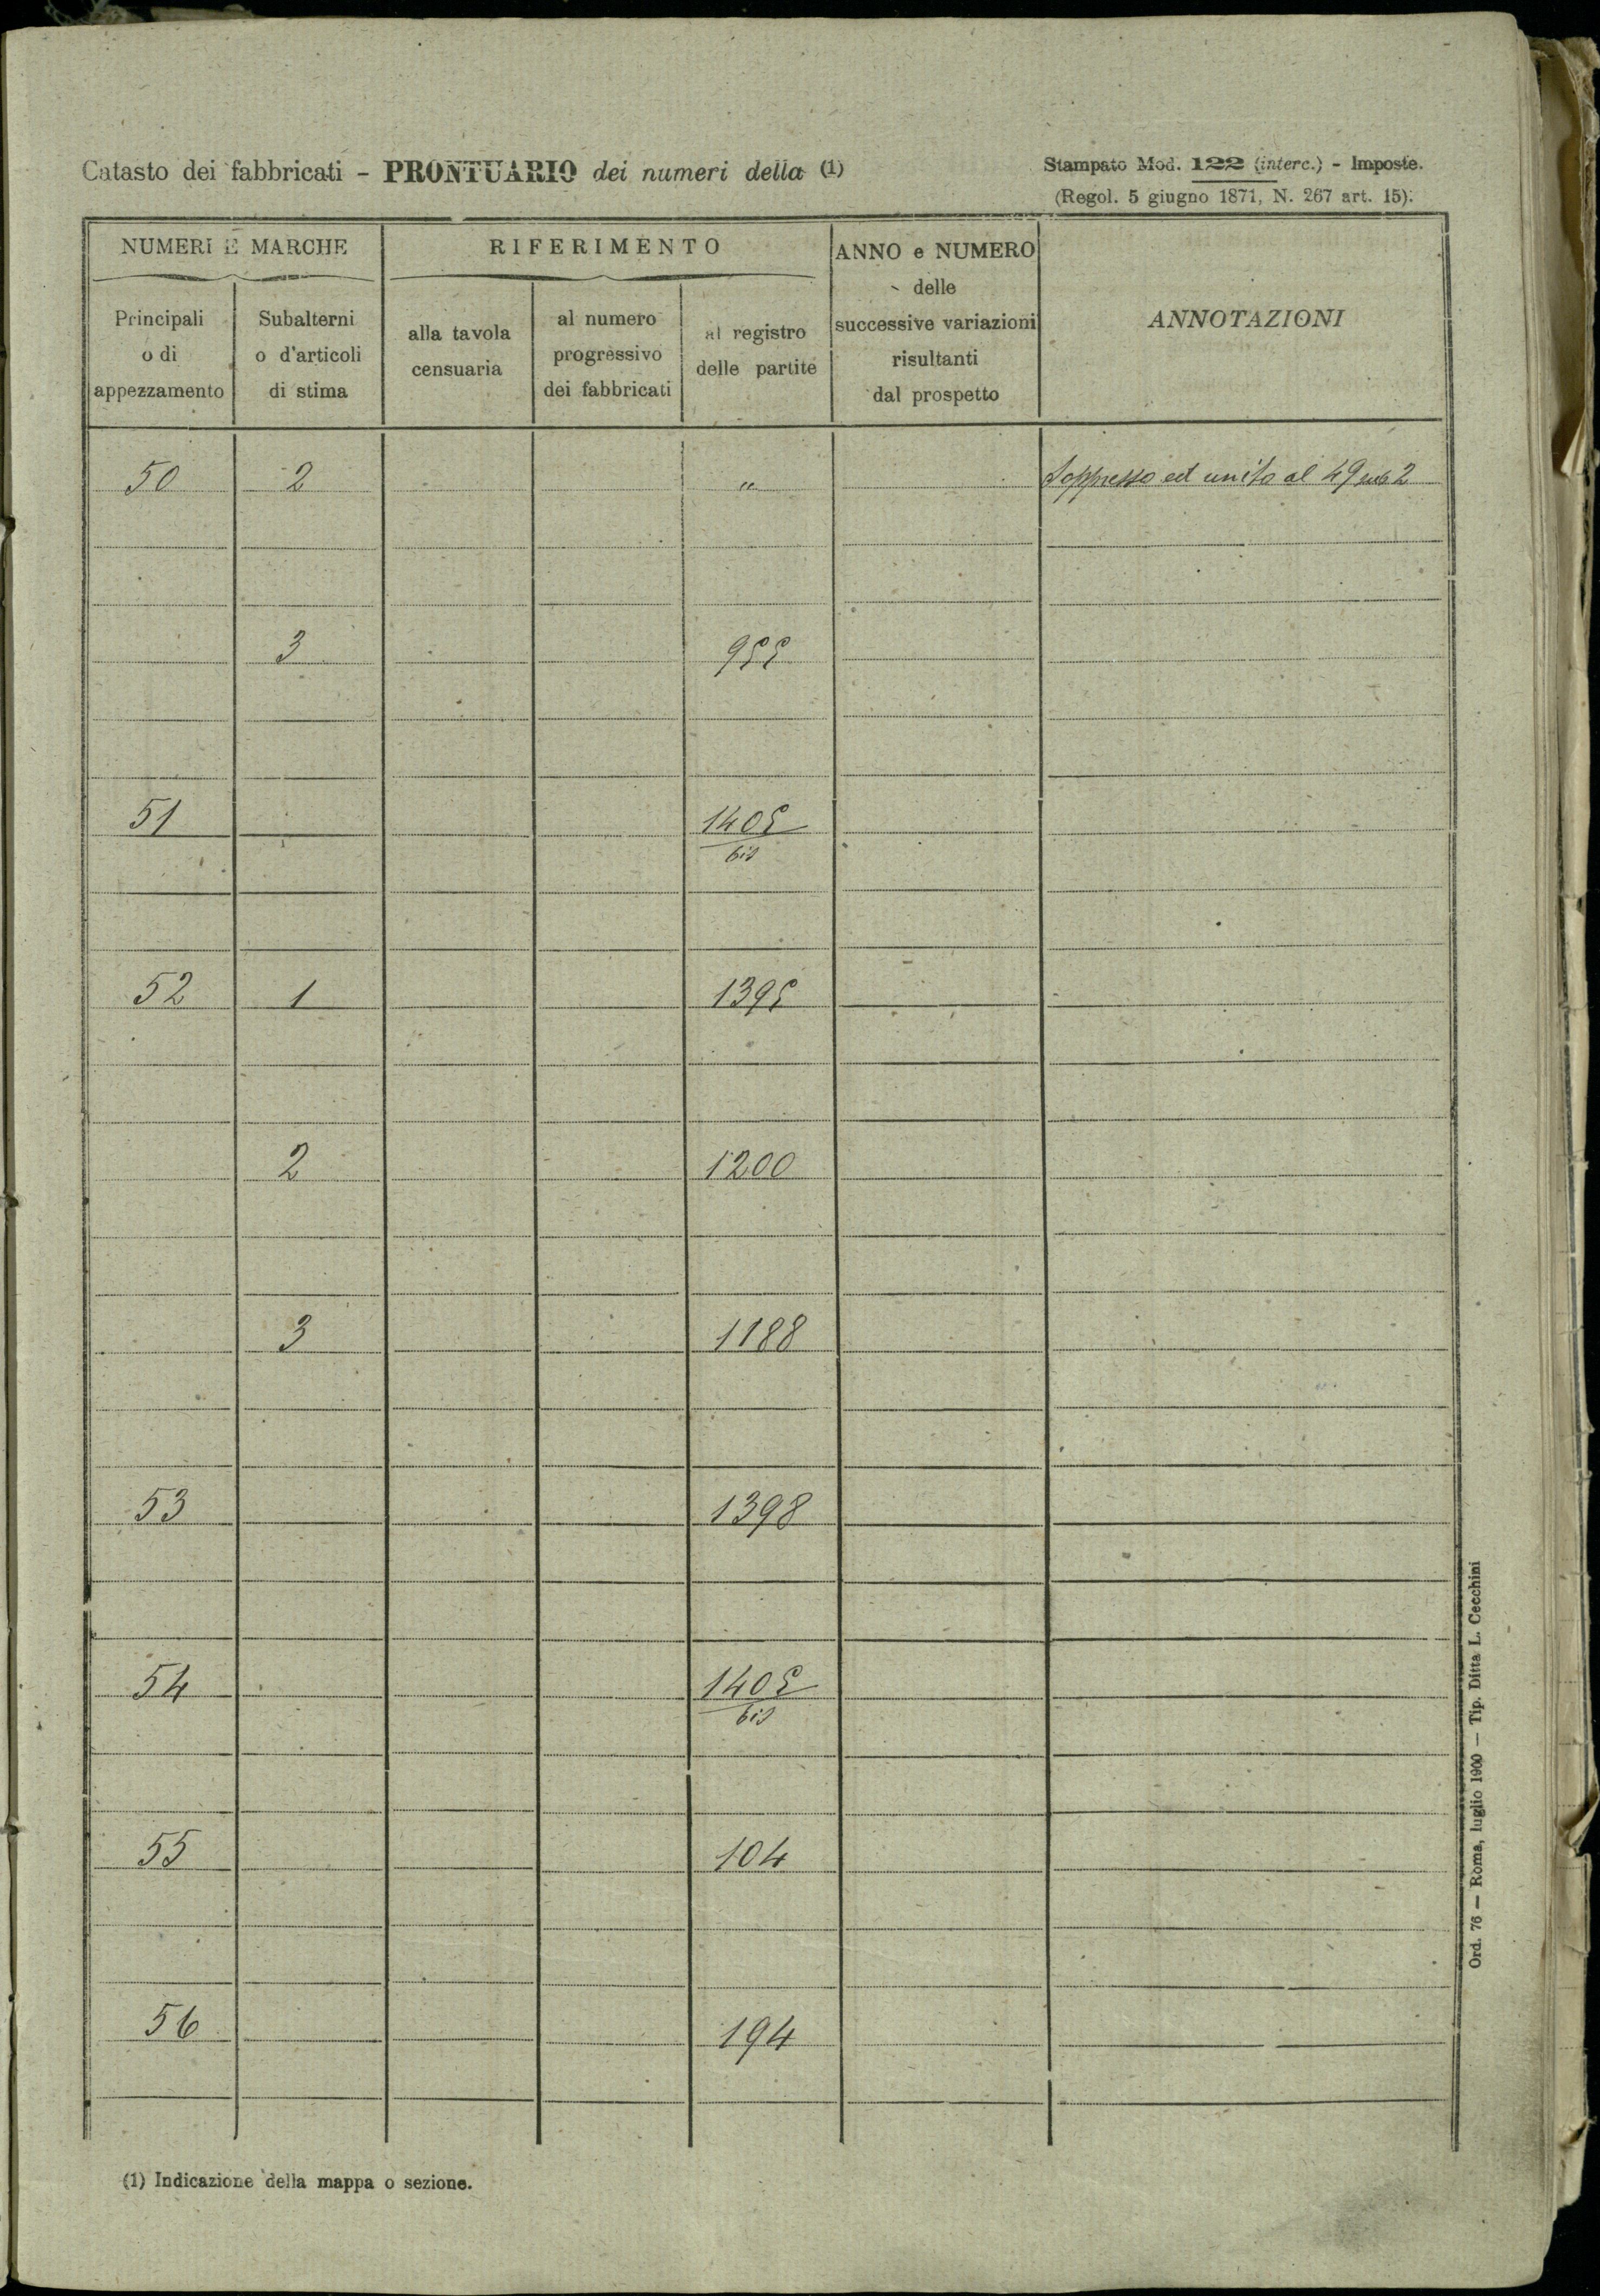 Catasto dei fabbricati - PRONTUARIO dei numeri della (1)
Stampato Mod. 122 (interc.) - Imposte.
(Regol. 5 giugno 1871, N. 267 art. 15).
NUMERI E MARCHE
RIFERIMENTO
ANNO e NUMERO
delle
successive variazioni
risultanti
dal prospetto
ANNOTAZIONI
Principali
o di
appezzamento
Subalterni
o d'articoli
di stima
alla tavola
censuaria
al numero
progressivo
dei fabbricati
al registro
delle partite
50 2 " Soppresso ed unito al 49 sub 2
3 955
51 1405
bis
52 1 1395
2 1200
3 1188
53 1398
54 1405
bis
55 104
56 194
(1) Indicazione della mappa o sezione.
Ord. 76 — Roma, luglio 1900 — Tip. Ditta L. Cecchini